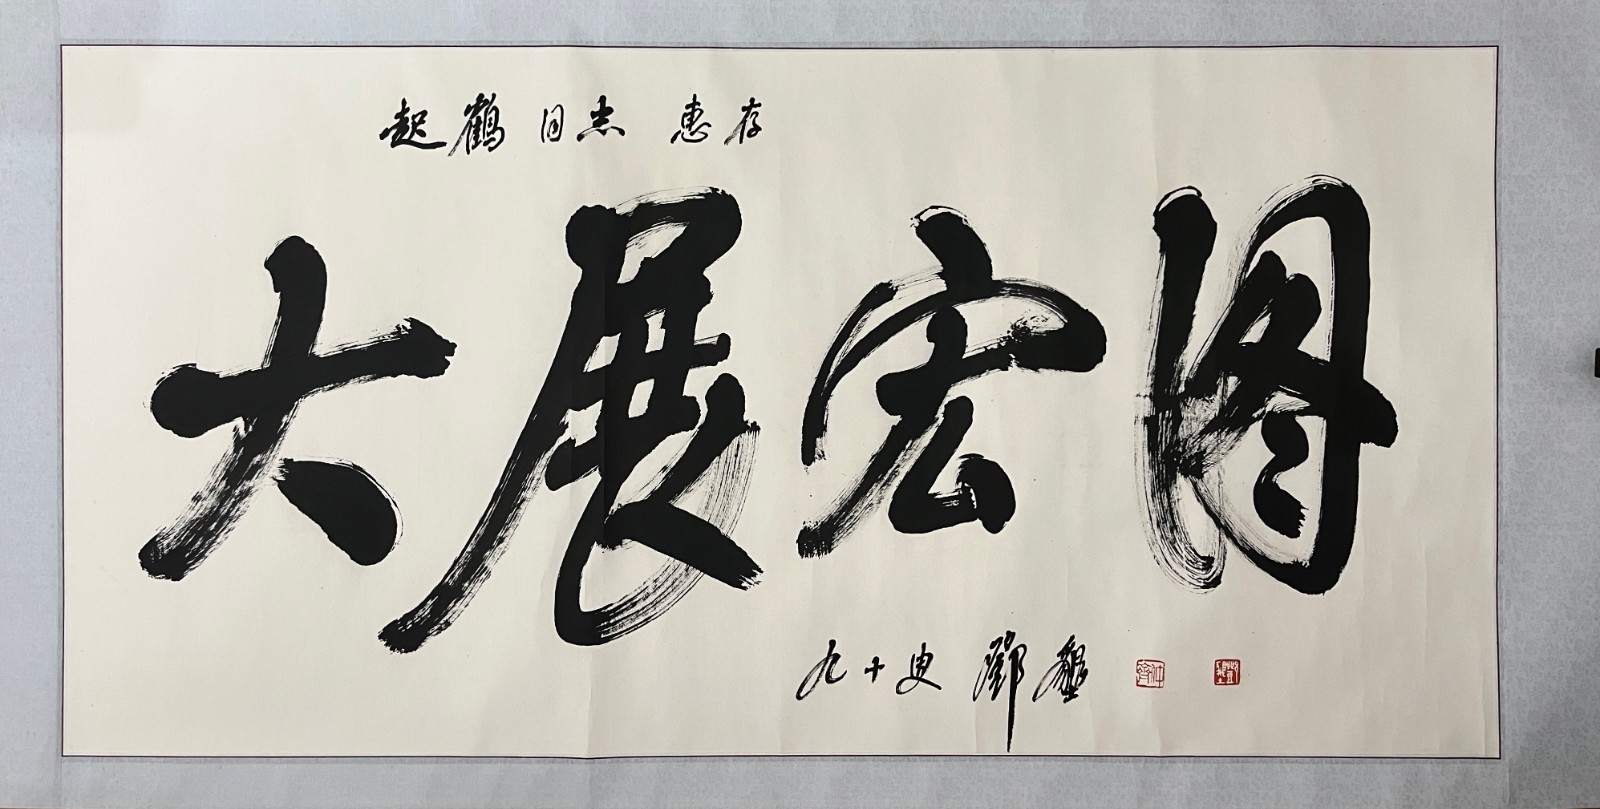 起鹤同志 惠存
大展宏图
九十叟 邓垦